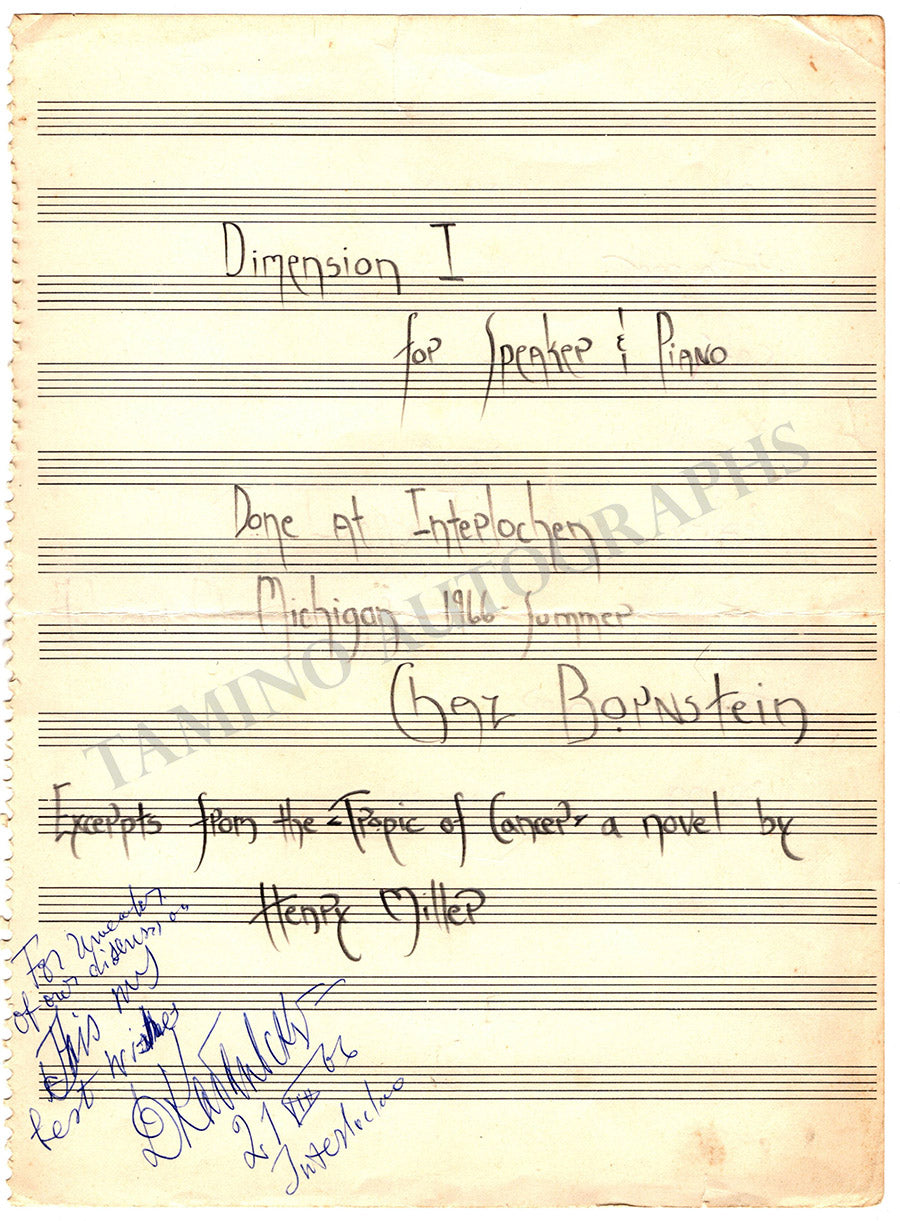 Dimension I
for Speaker & Piano
Done At Interlochen
Michigan 1966 Summer
Chaz Bornstein
Excerpts from the "Tropic of Cancer" a novel by
Henry Miller
TAMINO AUTOGRAPHS
For
of our discussion
This my
best wishes
D Kabalevsky
21 VIII 66
Interlochen